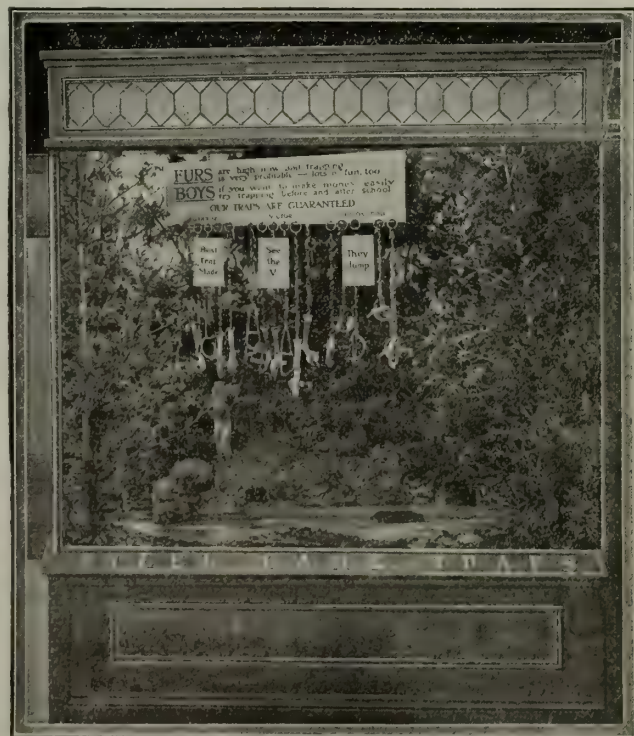 FURS are high now and trapping
is very profitable — lots of fun, too
BOYS if you want to make money easily
try trapping before and after school
OUR TRAPS ARE GUARANTEED
VICTOR
Best
Trap
Made
See
the
V
They
Jump
STEEL GAME TRAPS